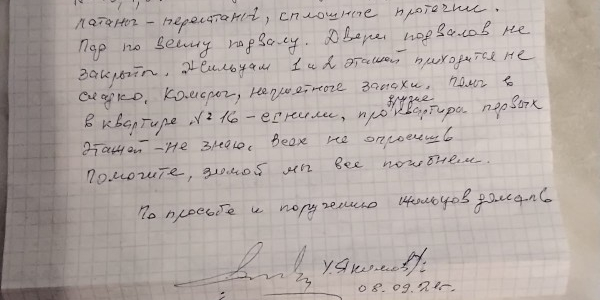 латаны - перелатаны, сплошные протечки.
Пар по всему подвалу. Двери подвалов не
закрыты. Жильцам 1 и 2 этажей приходится не
сладко. Комары, неприятные запахи. Полы в
в квартире № 16 - сгнили, про другие квартиры первых
этажей - не знаю, всех не опросишь
Помогите, зимой мы все погибнем.
По просьбе и поручению жильцов дома
08.09.21г.